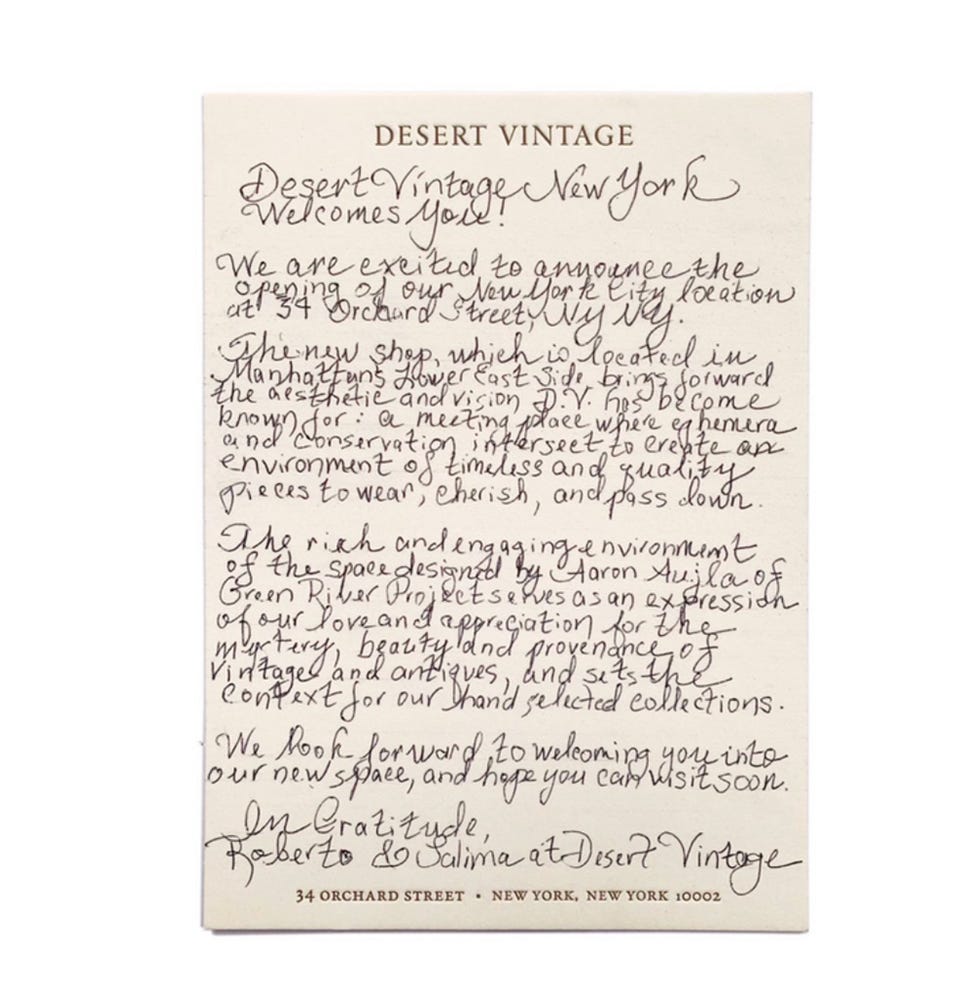 DESERT VINTAGE
Desert Vintage New York
Welcomes You!
We are excited to announce the
opening of our New York City location
at 34 Orchard Street, NY NY.
The new shop, which is located in
Manhattan's Lower East Side, brings forward
the aesthetic and vision D.V. has become
known for: a meeting place where ephemera
and conservation intersect to create an
environment of timeless and quality
pieces to wear, cherish, and pass down.
The rich and engaging environment
of the space designed by Aaron Aujla of
Green River Project serves as an expression
of our love and appreciation for the
mystery, beauty and provenance of
vintage and antiques, and sets the
context for our hand selected collections.
We look forward to welcoming you into
our new space, and hope you can visit soon.
In Gratitude,
Roberto & Salima at Desert Vintage
34 ORCHARD STREET • NEW YORK, NEW YORK 10002